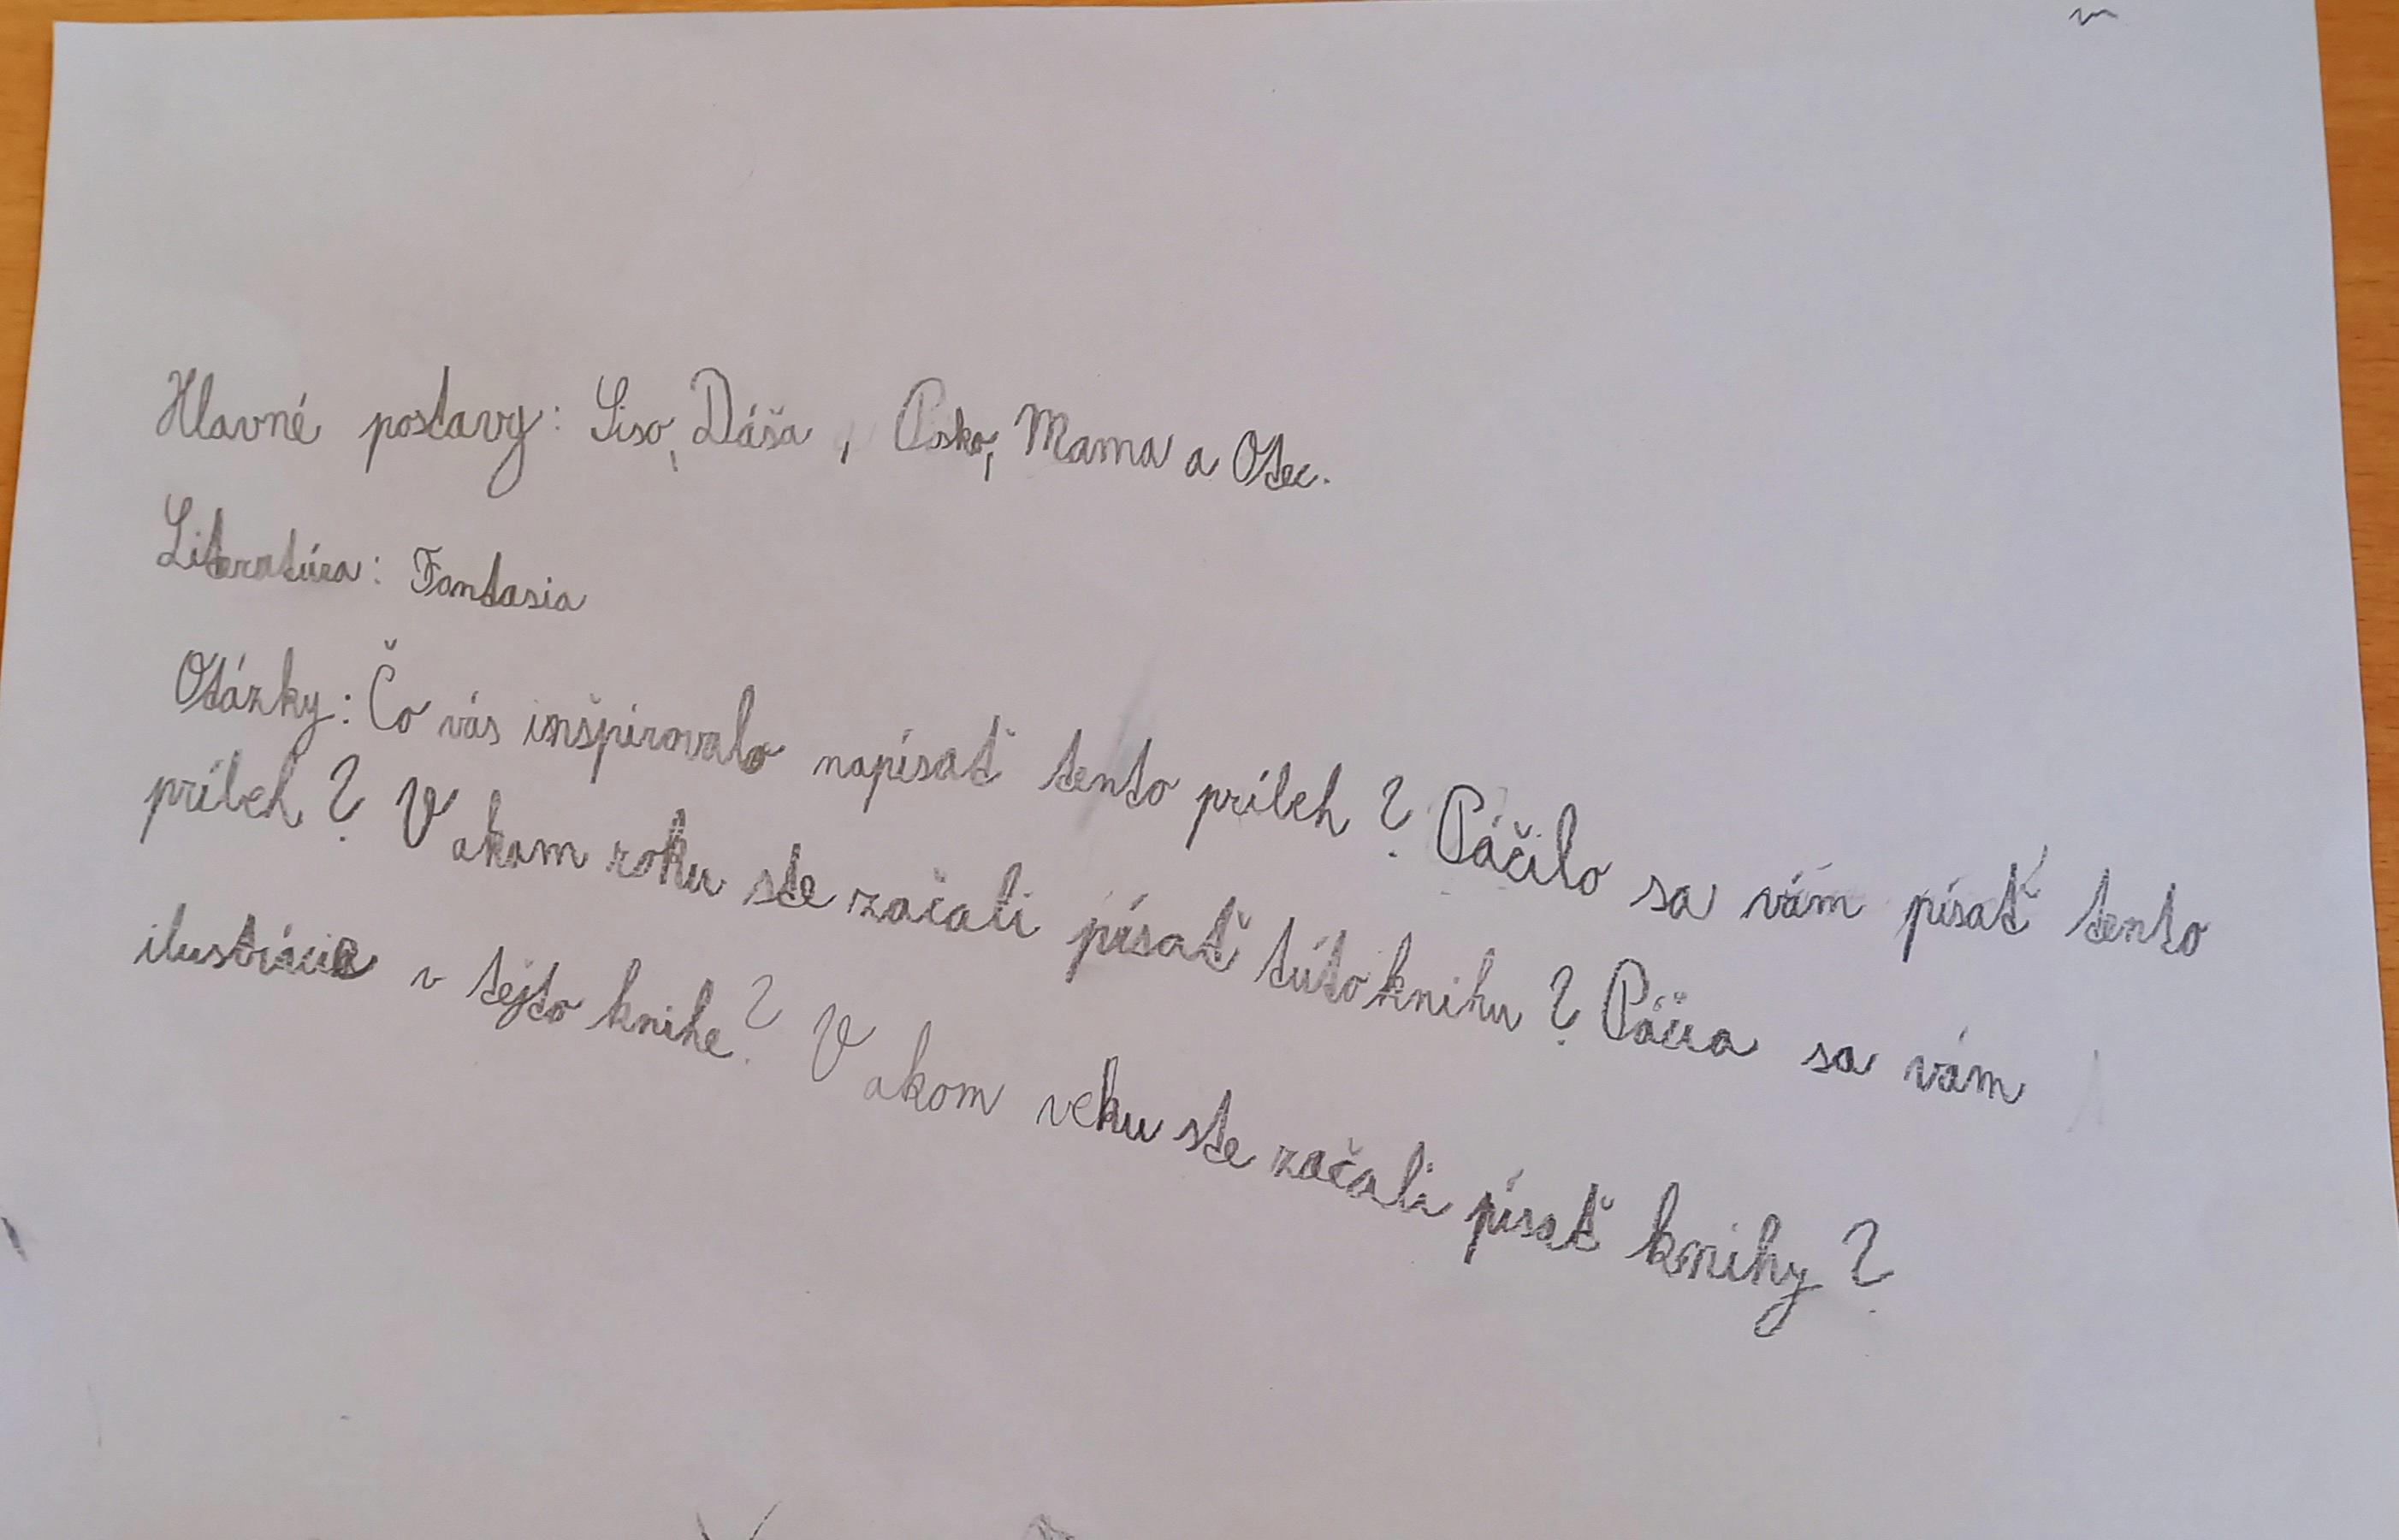 Hlavné postavy: Siso, Dáša, Psko, Mama a Otec.
Literatúra: Fantasia
Otázky: Čo vás inšpirovalo napísať tento príbeh? Páčilo sa vám písať tento
príbeh? V akom roku ste začali písať túto knihu? Páčia sa vám
ilustrácie v tejto knihe? V akom veku ste začali písať knihy?